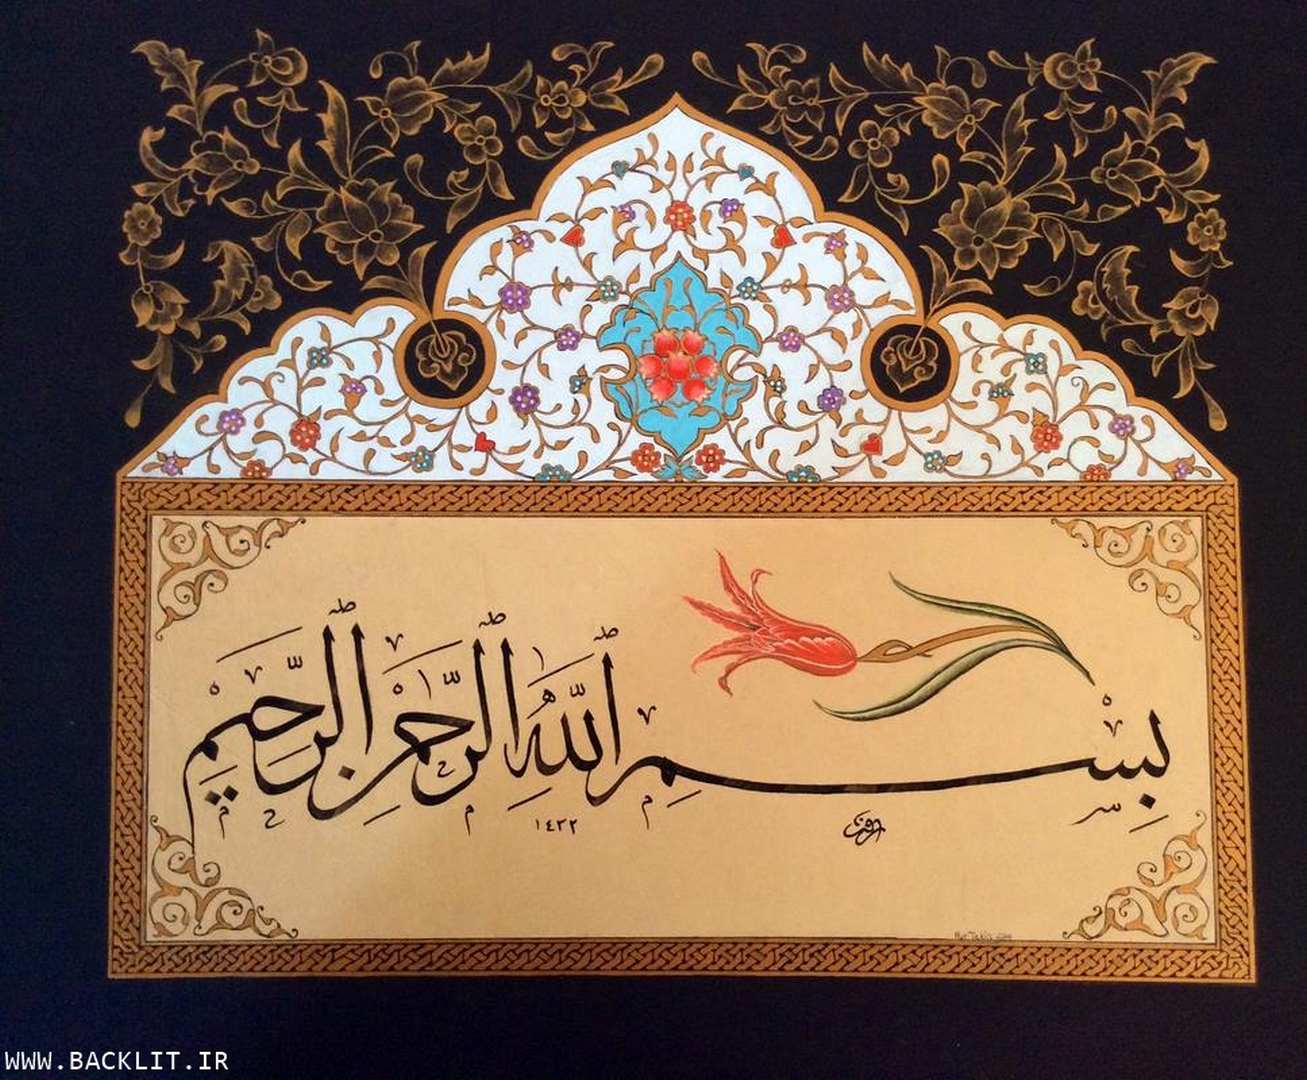 بِسْمِ اللّٰهِ الرَّحْمٰنِ الرَّحِيْمِ
١٤٣٢
WWW.BACKLIT.IR